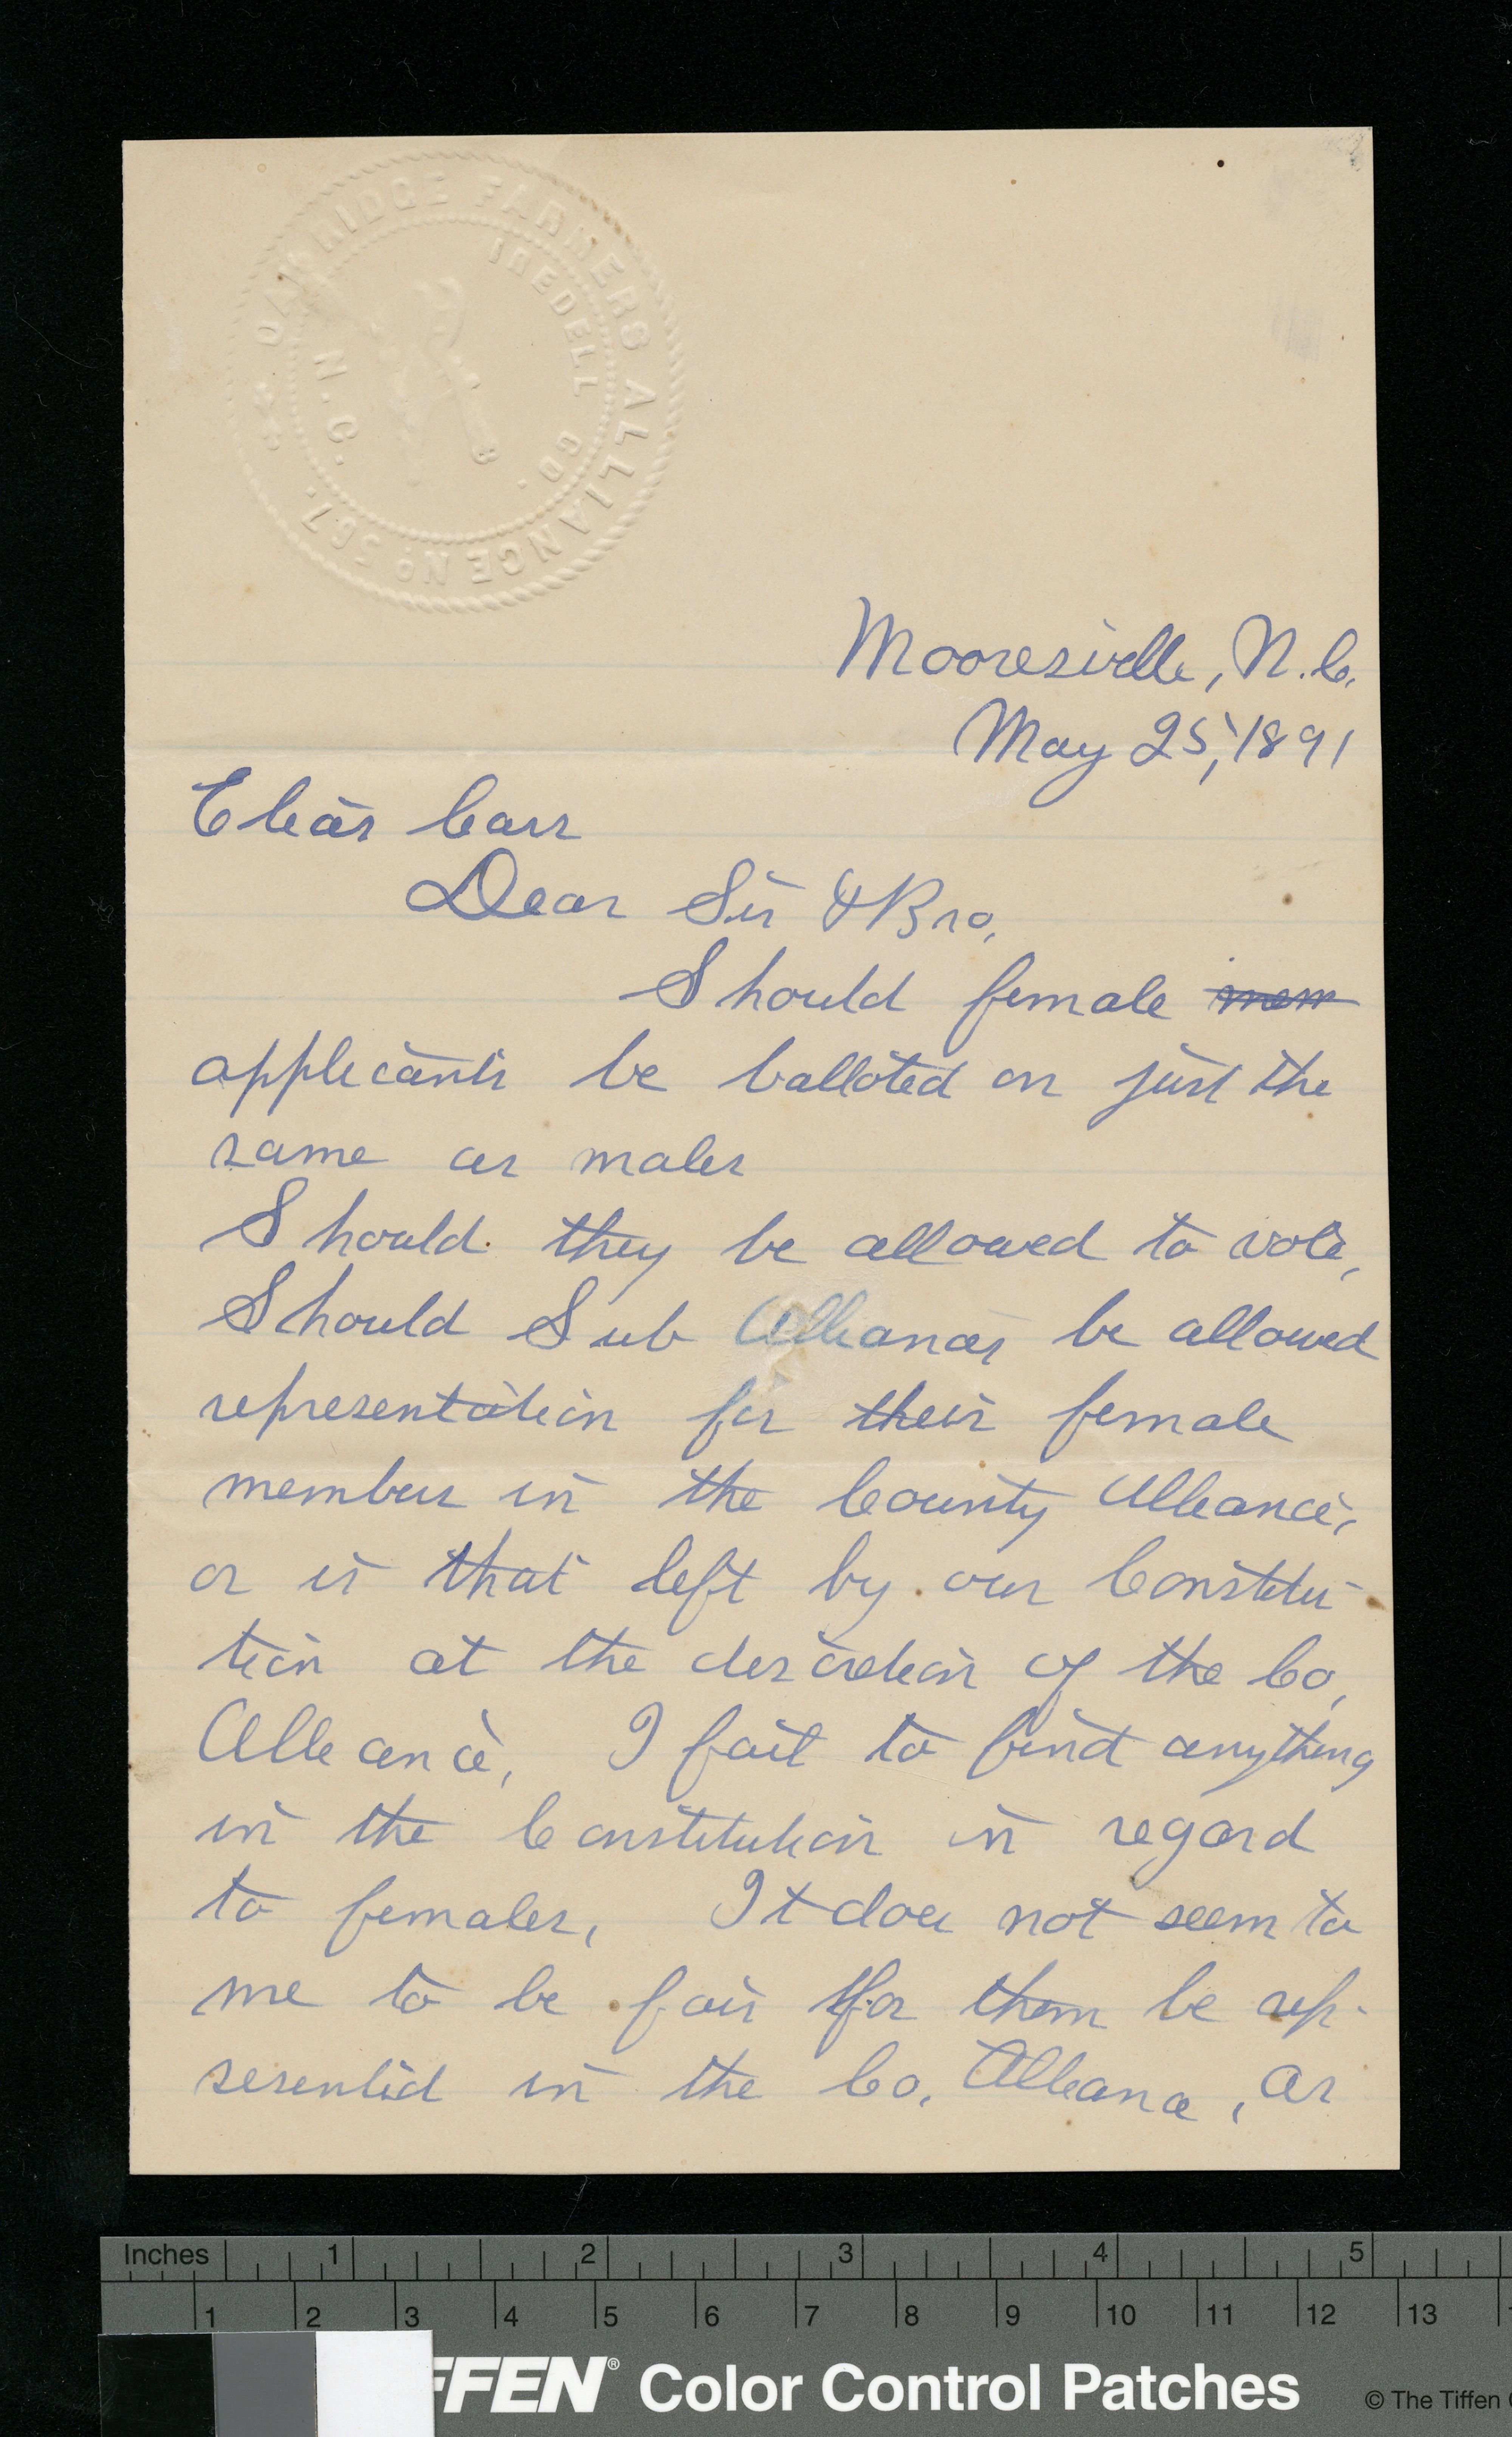 OAK RIDGE FARMERS ALLIANCE No 567.
IREDELL CO.
N.C.
Mooresville, N.C.
May 25, 1891
Elias Carr
Dear Sir & Bro.
Should female mem
applicants be balloted on just the
same as males
Should they be allowed to vote,
Should Sub Alliances be allowed
representation for their female
members in the County Alliance,
or is that left by our Constitu-
tion at the descretion of the Co,
Alliance, I fail to find anything
in the Constitution in regard
to females, It does not seem to
me to be fair for them be rep-
resented in the Co. Alliance, as
Inches 1 2 3 4 5
1 2 3 4 5 6 7 8 9 10 11 12 13
FFEN® Color Control Patches
© The Tiffen